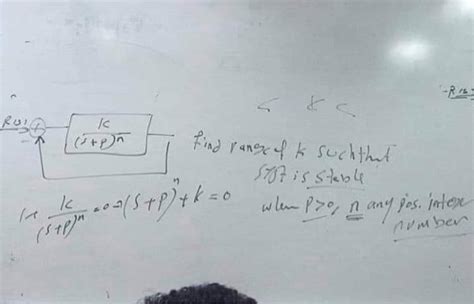 R(s)
+
-
k
(s+p)^n
< k <
find range of k such that
syst is stable
when p>0, n any pos. integer
number
1+ k/(s+p)^n = 0 => (s+p)^n + k = 0